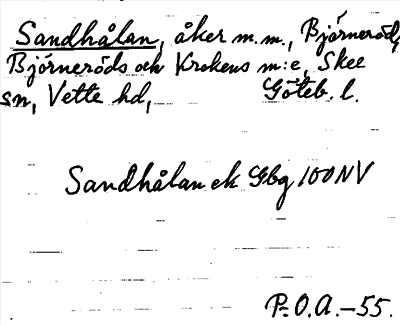 Sandhålan, åker m.m., Björneröd,
Björneröds och Krokens m:e, Skee
sn, Vette hd, Göteb. l.
Sandhålan ek Gbg 100 NV
P-O.A.-55.